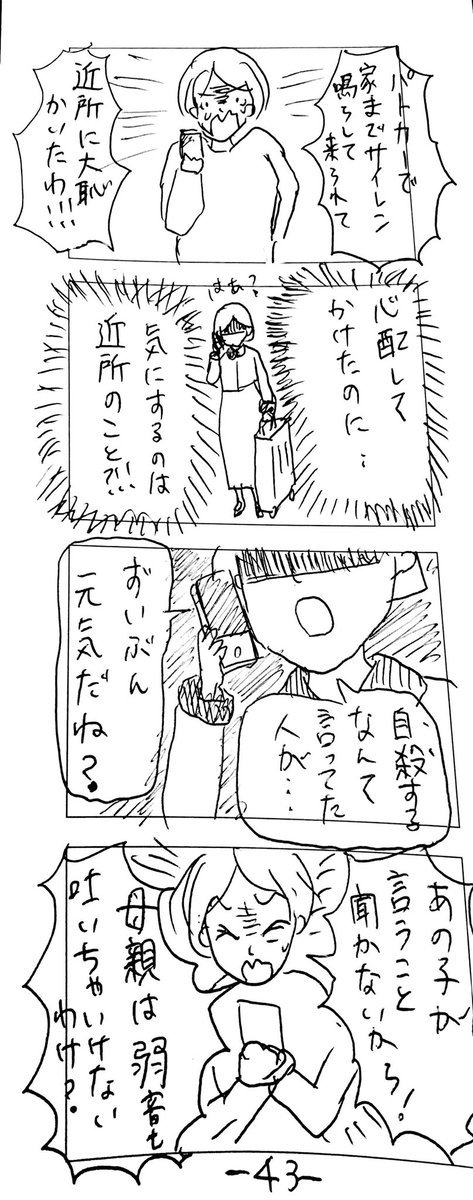 パトカーで
家までサイレン
鳴らして
来られて
近所に大恥
かいたわ!!!
心配して
かけたのに…
はあ?
気にするのは
近所のこと?!!
自殺する
なんて
言ってた
人が…
ずいぶん
元気だね?
あの子が
言うこと
聞かないから!
母親は弱音も
吐いちゃいけない
わけ?
-43-